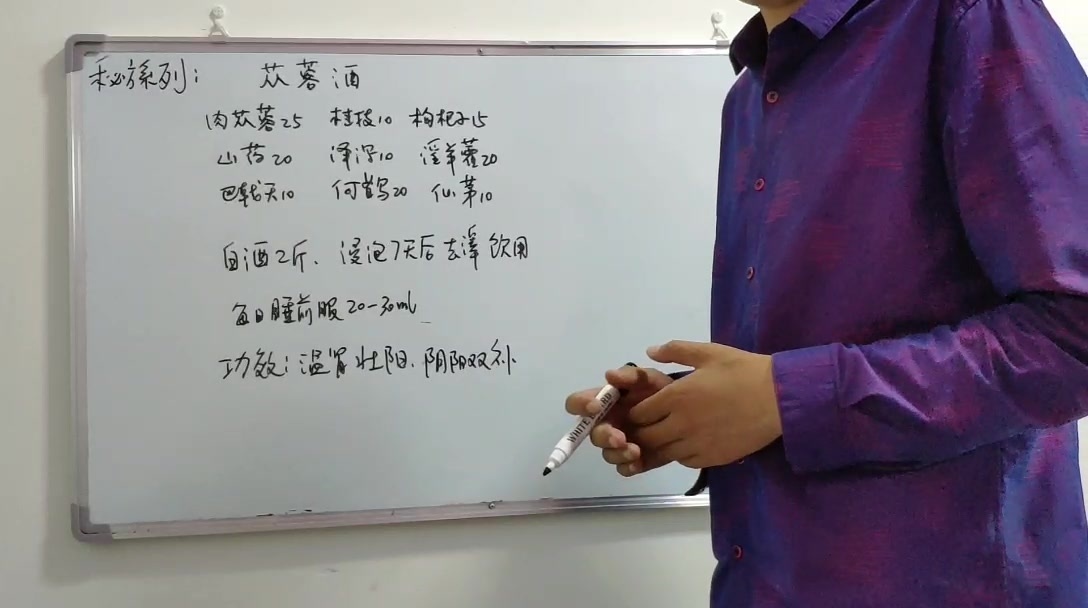 秘方系列： 苁蓉酒
肉苁蓉25 桂枝10 枸杞子15
山药20 泽泻10 淫羊藿20
巴戟天10 何首乌20 仙茅10
白酒2斤、浸泡7天后去渣饮用
每日睡前服20-30ml
功效：温肾壮阳、阴阳双补
WHITE BOARD